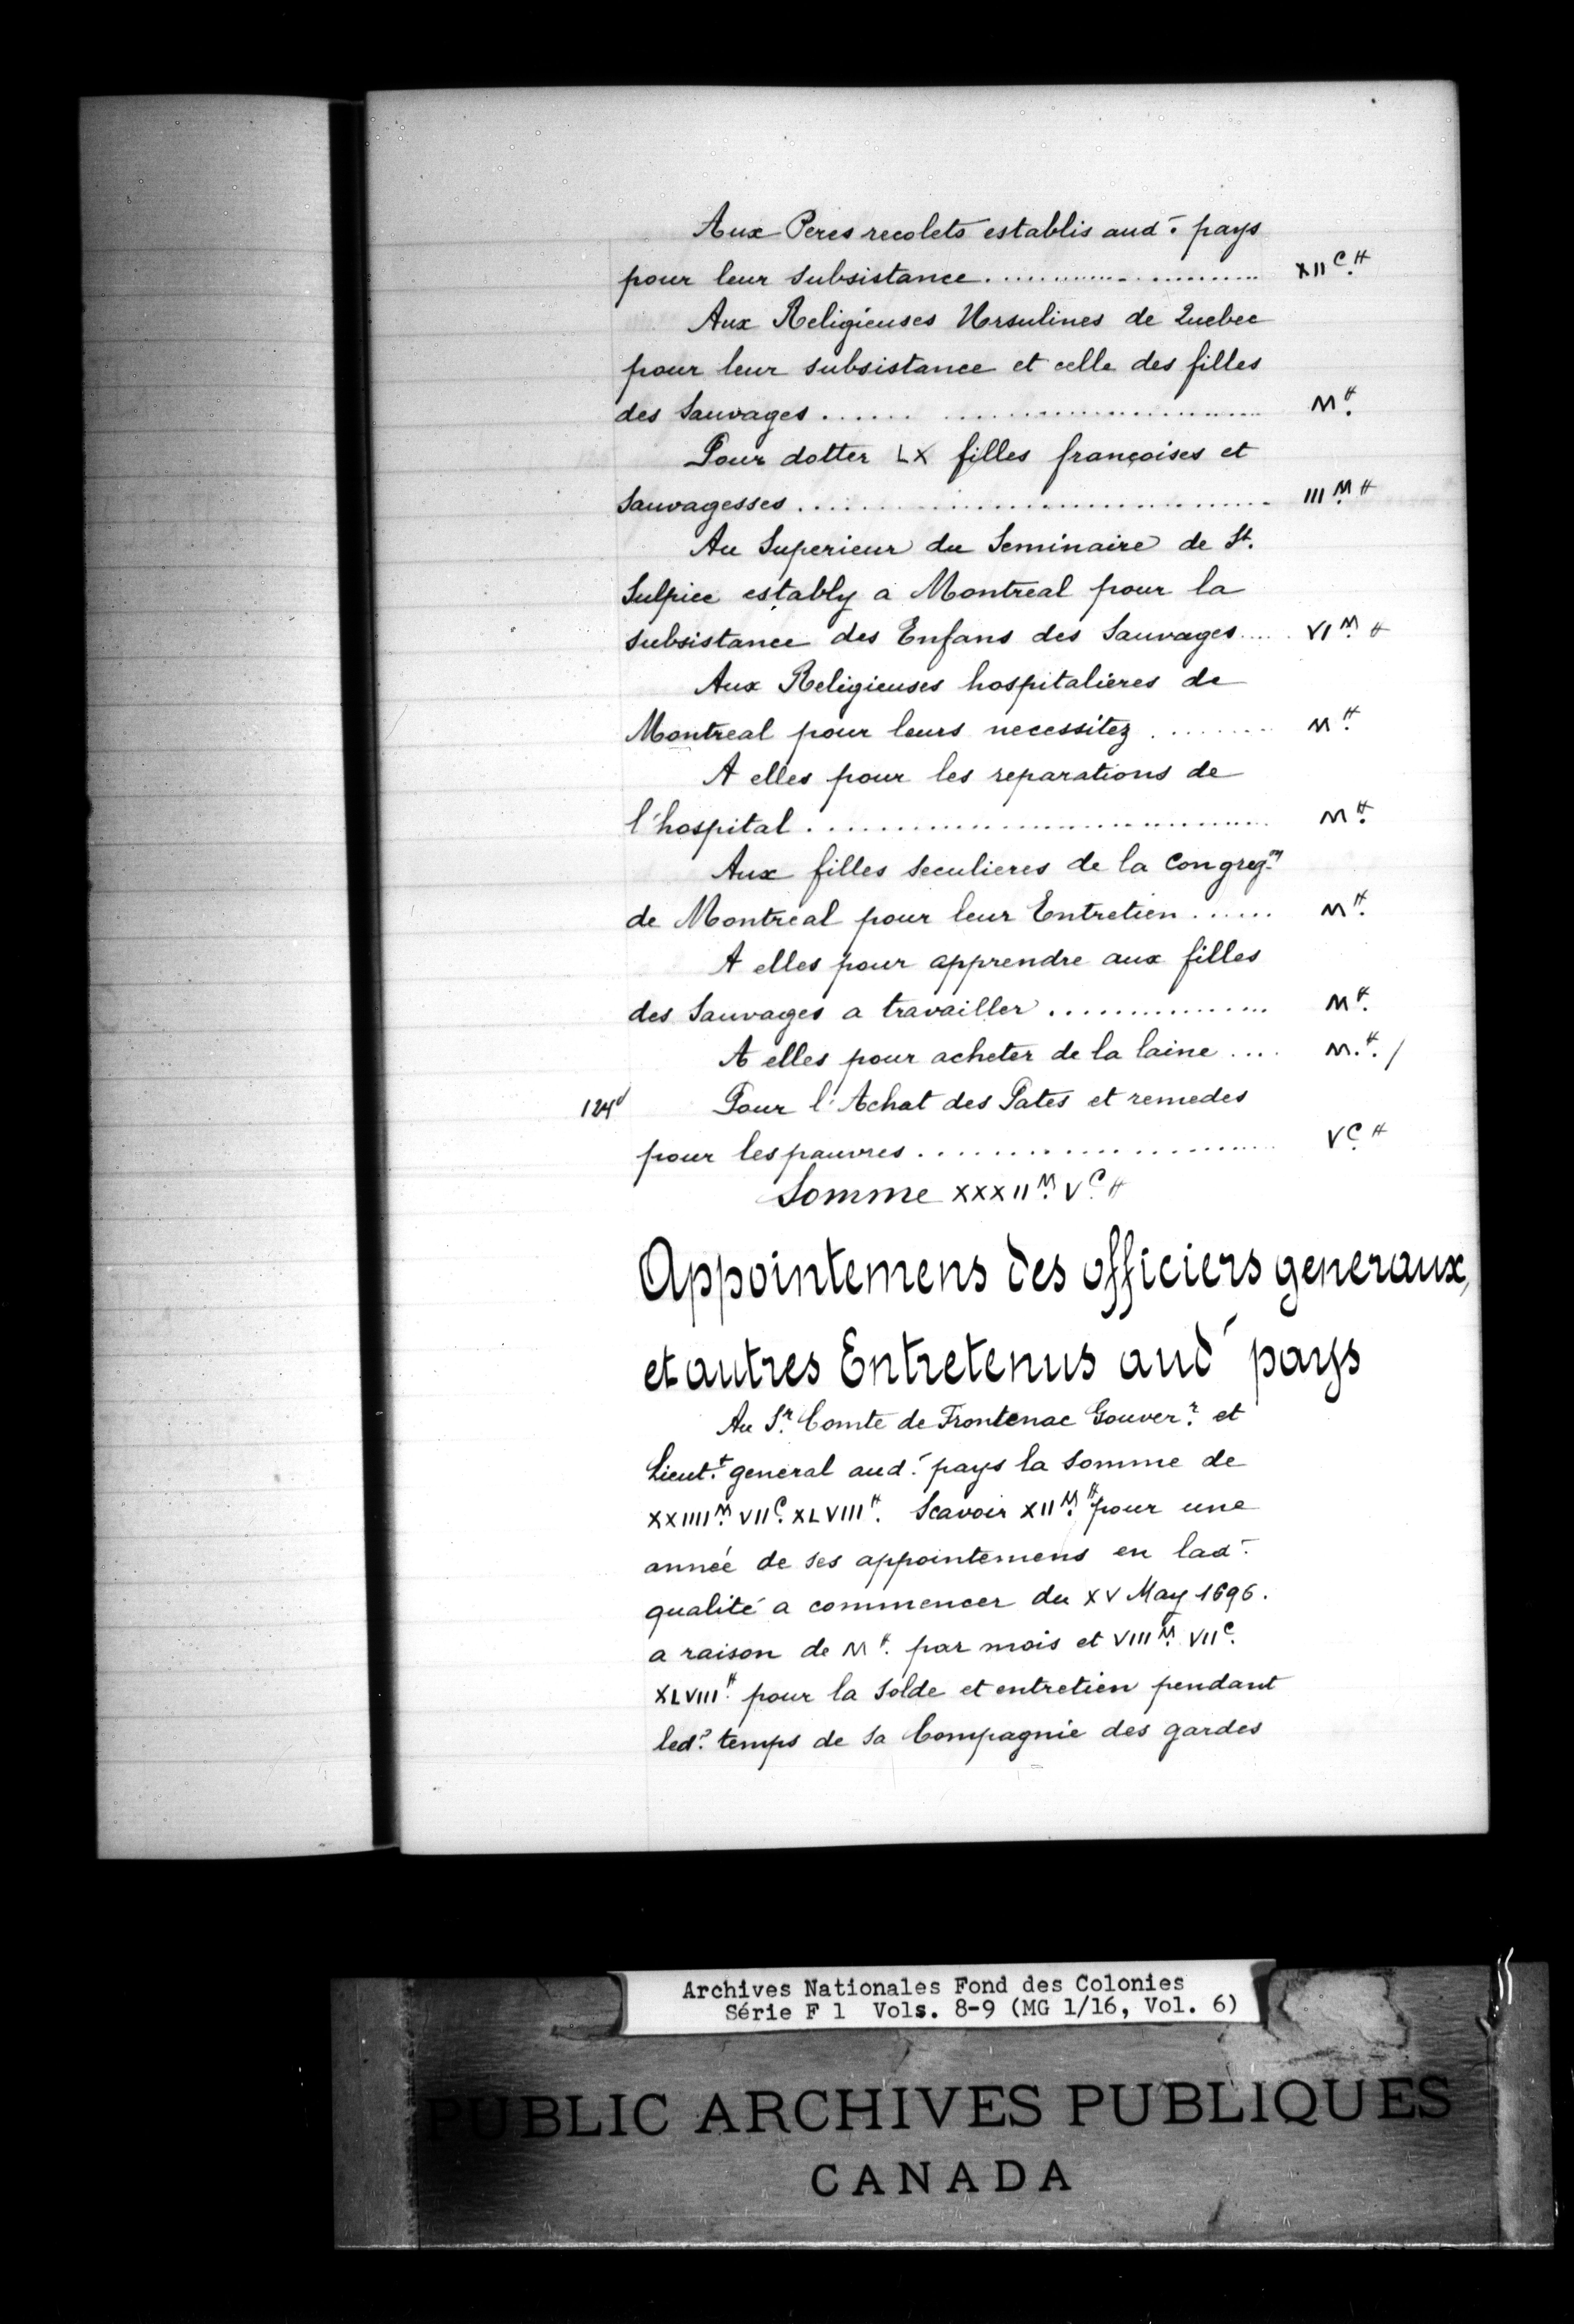 Aux Peres recolets establis aud.t pays
pour leur subsistance........................ XII C. ₶
Aux Religieuses Ursulines de Quebec
pour leur subsistance et celle des filles
des Sauvages........................ M ₶.
Pour dotter LX filles françoises et
Sauvagesses........................ III M. ₶
Au Superieur du Seminaire de St.
Sulpice establly a Montreal pour la
subsistance des Enfans des Sauvages.... VI M. ₶
Aux Religieuses hospitalieres de
Montreal pour leurs necessitez ........ M ₶.
A elles pour les reparations de
l'hospital........................ M ₶.
Aux filles seculieres de la Congreg.on
de Montreal pour leur Entretien...... M ₶.
A elles pour apprendre aux filles
des Sauvages a travailler............... M ₶.
A elles pour acheter de la laine.... M. ₶. /
124 v Pour l'Achat des Pates et remedes
pour les pauvres........................ V C. ₶
Somme XXXII M. V C. ₶
Appointemens des officiers generaux,
et autres Entretenus aud' pays
Au S.r Comte de Frontenac Gouver.r et
Lieut.t general aud.t pays la Somme de
XXIIII M. VII C. XLVIII ₶. Scavoir XII M. ₶ pour une
année de ses appointemens en lad.
qualité a commencer du XV May 1696.
a raison de M ₶. par mois et VIII M. VII C.
XLVIII ₶. pour la Solde et entretien pendant
led.t temps de sa Compagnie des gardes
Archives Nationales Fond des Colonies
Série F 1 Vols. 8-9 (MG 1/16, Vol. 6)
PUBLIC ARCHIVES PUBLIQUES
CANADA